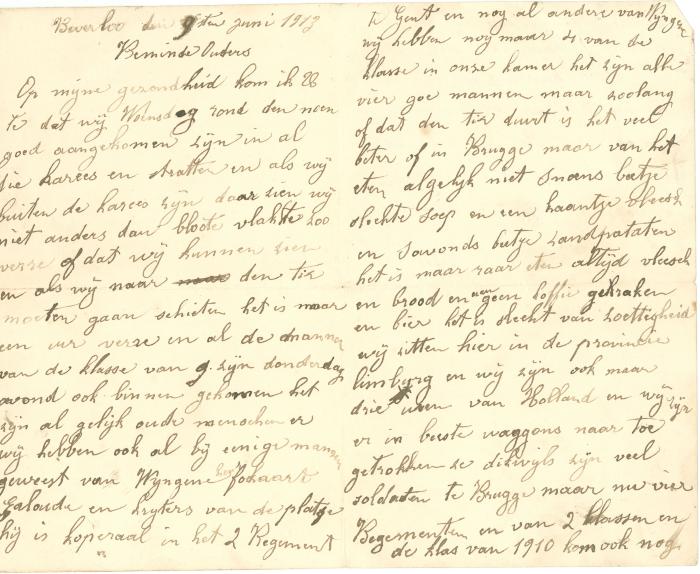 Beverloo den 9ten juni 1913
Beminde Ouders
Op mijne gezondheid kom ik
te dat wij Woensdag rond den noen
goed aangekomen zijn in al
die karees en straten en als wij
buiten de karees zijn daar zien wij
niet anders dan bloote vlakte zoo
verre of dat wij kunnen zien
en als wij naar den tir
moeten gaan schieten het is maar
een uur verre en al de mannen
van de klasse van 9 zijn donderdag
avond ook binnen gekomen het
zijn al gelijk oude menschen er
wij hebben ook al bij eenige mannen
geweest van Wyngene
en van de platse
hij is koperaal in het 2 Regement
te Gent en nog al andere van Wyngene
wij hebben nog maar 4 van de
klasse in onze kamer het zijn alle
vier goe mannen maar zoolang
of dat den tir duurt is het veel
beter of in Brugge maar van het
eten algelijk niet Snoens betje
slechte soep en een kaantje vleesch
en Savonds betje Landpataten
het is maar raar eten altijd vleesch
en brood en geen koffie gekraken
en bier het is slecht van zoettigheid
wij zitten hier in de provincie
limburg en wij zijn ook maar
drie uren van Holland en wij zijn
er in beeste waggons naar toe
getrokken ze dikwijls zijn veel
soldaten te Brugge maar nu vier
Regementen en van 2 klassen en
de klas van 1910 kom ook nog